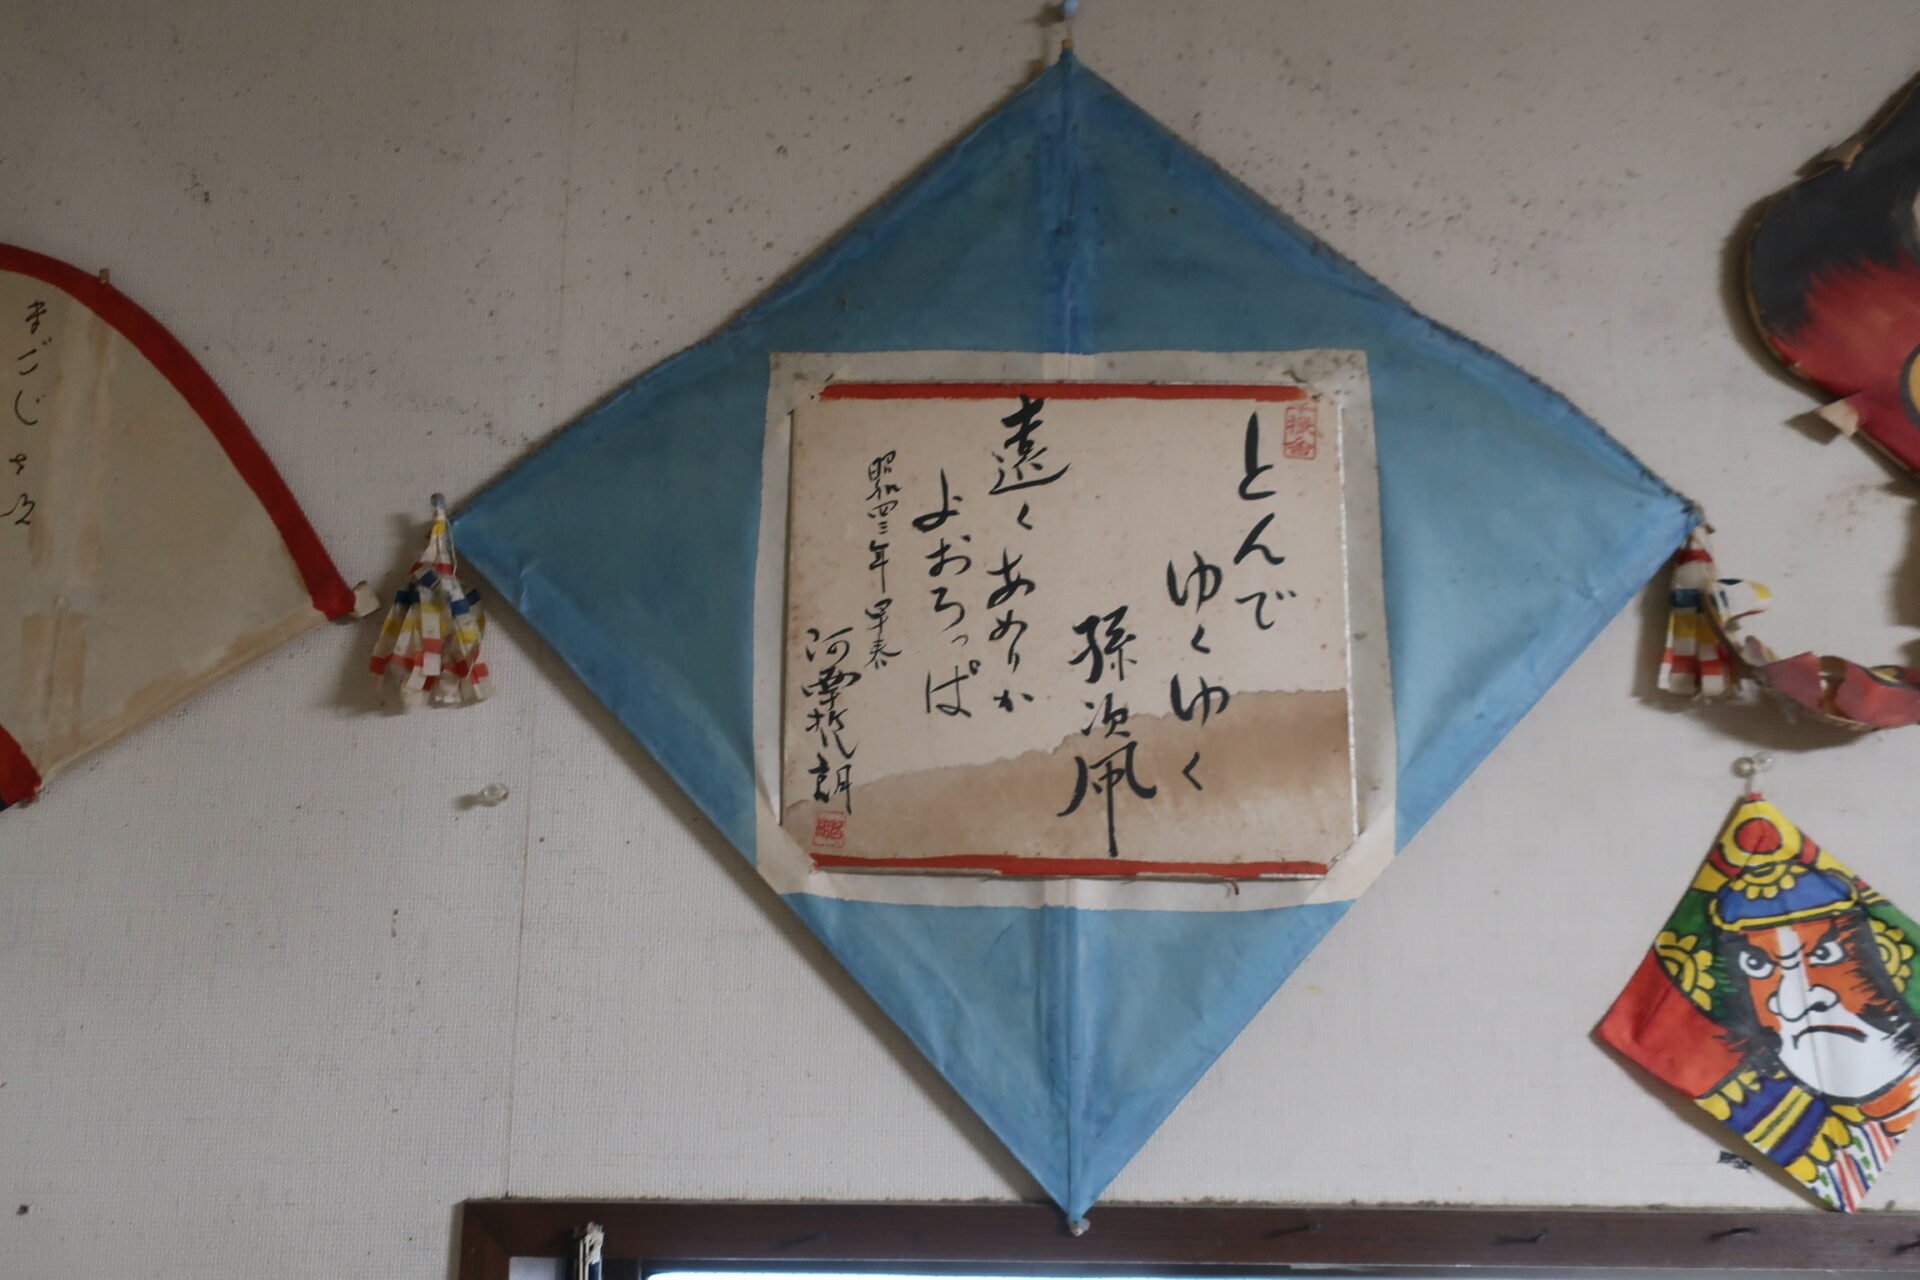 とんで
ゆくゆく
孫次凧
遠くあめりか
よおろっぱ
昭和四三年 早春
河野哲朗
まごじ